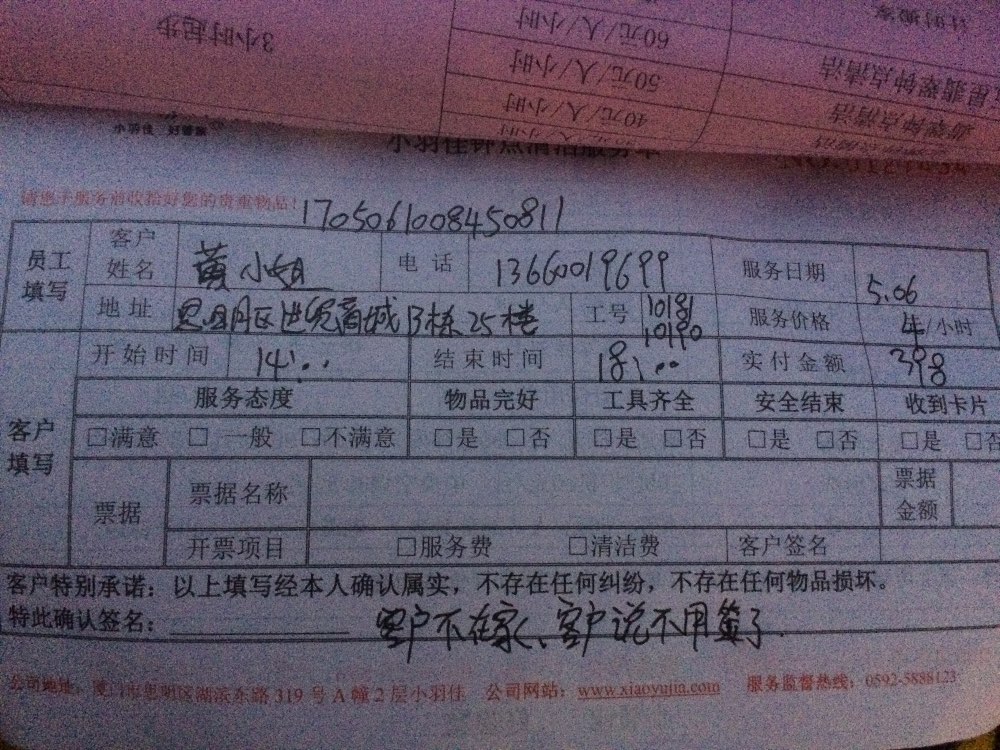 3小时起步
60元/人/小时
50元/人/小时
40元/人/小时
翡翠钟点清洁
小羽佳 好管家
小羽佳钟点清洁服务单
请您于服务前收拾好您的贵重物品!
1705061008450811
员工填写 客户姓名 黄小姐 电话 13660019699 服务日期 5.06
地址 思明区进免商城B栋25楼 工号 10181 10190 服务价格 /小时
开始时间 14:00 结束时间 18:00 实付金额 398
客户填写 服务态度 物品完好 工具齐全 安全结束 收到卡片
□满意 □一般 □不满意 □是 □否 □是 □否 □是 □否 □是 □否
票据 票据名称 票据金额
开票项目 □服务费 □清洁费 客户签名
客户特别承诺:以上填写经本人确认属实,不存在任何纠纷,不存在任何物品损坏。
特此确认签名: 客户不在家、客户说不用签了.
公司地址:厦门市思明区湖滨东路319号A幢2层小羽佳 公司网站:www.xiaoyujia.com 服务监督热线:0592-5888123